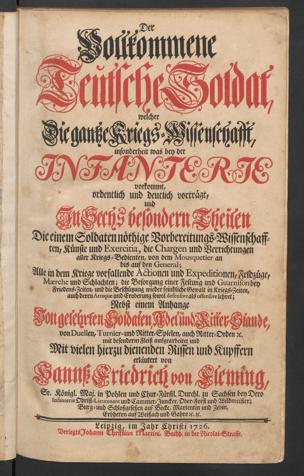 Der
Vollkommene
Teutsche Soldat,
welcher
Die gantze Kriegs-Wissenschafft,
insonderheit was bey der
INFANTERIE
vorkommt,
ordentlich und deutlich vorträgt,
und
In Sechs besondern Theilen
Die einem Soldaten nöthige Vorbereitungs-Wissenschaff-
ten, Künste und Exercitia, die Chargen und Verrichtungen
aller Kriegs-Bedienten, von dem Mousquetier an
bis auf den General;
Alle in dem Kriege vorfallende Actionen und Expeditionen, Feldzüge,
Marche und Schlachten; die Besorgung einer Festung und Guarnison bey
Friedens-Zeiten, und die Beschützung wieder feindliche Gewalt in Kriegs-Zeiten,
auch deren Attaque und Eroberung, sowol defensive als offensive lehret;
Nebst einem Anhange
Von gelehrten Soldaten, Adel und Ritter-Stande,
von Duellen, Turnier- und Ritter-Spielen, auch Ritter-Orden ꝛc.
mit besonderm Fleiß ausgearbeitet und
Mit vielen hierzu dienenden Rissen und Kupffern
erläutert von
Hannß Friedrich von Fleming,
Sr. Königl. Maj. in Pohlen und Chur-Fürstl. Durchl. zu Sachsen
Burg- und Schloßgesessen auf Böcke, Martentin und Zebin,
Erbherrn auf Weißach und Gahro ꝛc. ꝛc.
Leipzig, im Jahr Christi 1726.
Verlegts Johann Christian Martini, Buchh. in der Nicolai-Strasse.